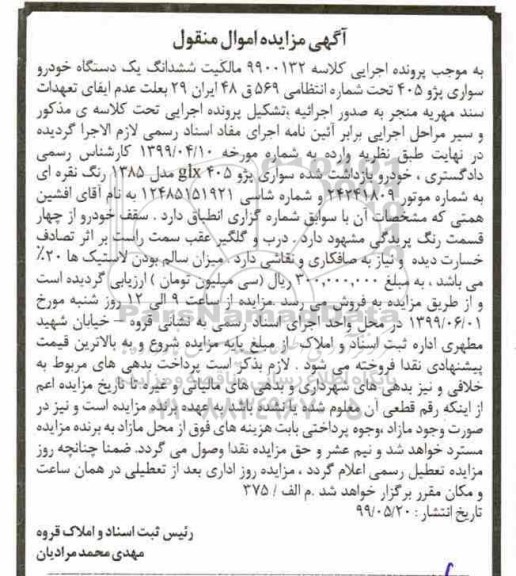 آگهی مزایده اموال منقول
به موجب پرونده اجرایی کلاسه ۹۹۰۰۱۳۲ مالکیت ششدانگ یک دستگاه خودرو
سواری پژو ۴۰۵ تحت شماره انتظامی ۵۶۹ ق ۴۸ ایران ۲۹ بعلت عدم ایفای تعهدات
سند مهریه منجر به صدور اجرائیه ،تشکیل پرونده اجرایی تحت کلاسه ی مذکور
و سیر مراحل اجرایی برابر آئین نامه اجرای مفاد اسناد رسمی لازم الاجرا گردیده
در نهایت طبق نظریه وارده به شماره مورخه ۱۳۹۹/۰۴/۱۰ کارشناس رسمی
دادگستری ، خودرو بازداشت شده سواری پژو ۴۰۵ glx مدل ۱۳۸۵ رنگ نقره ای
به شماره موتور و شماره شاسی ۱۲۴۸۵۱۵۱۹۲۱ به نام آقای افشین
همتی که مشخصات آن با سوابق شماره گزاری انطباق دارد . سقف خودرو از چهار
قسمت رنگ پریدگی مشهود دارد . درب و گلگیر عقب سمت راست بر اثر تصادف
خسارت دیده و نیاز به صافکاری و نقاشی دارد . میزان سالم بودن لاستیک ها ۲۰٪
می باشد ، به مبلغ ۳۰۰,۰۰۰,۰۰۰ ریال (سی میلیون تومان ) ارزیابی گردیده است
و از طریق مزایده به فروش می رسد .مزایده از ساعت ۹ الی ۱۲ روز شنبه مورخ
۱۳۹۹/۰۶/۰۱ در محل واحد اجرای اسناد رسمی به نشانی قروه – خیابان شهید
مطهری اداره ثبت اسناد و املاک از مبلغ پایه مزایده شروع و به بالاترین قیمت
پیشنهادی نقدا فروخته می شود . لازم بذکر است پرداخت بدهی های مربوط به
خلافی و نیز بدهی های شهرداری و بدهی های مالیاتی و غیره تا تاریخ مزایده اعم
از اینکه رقم قطعی آن معلوم شده یا نشده باشد به عهده برنده مزایده است و نیز در
صورت وجود مازاد ،وجوه پرداختی بابت هزینه های فوق از محل مازاد به برنده مزایده
مسترد خواهد شد و نیم عشر و حق مزایده نقدا وصول می گردد. ضمنا چنانچه روز
مزایده تعطیل رسمی اعلام گردد ، مزایده روز اداری بعد از تعطیلی در همان ساعت
و مکان مقرر برگزار خواهد شد .م الف / ۳۷۵
تاریخ انتشار : ۹۹/۰۵/۲۰
رئیس ثبت اسناد و املاک قروه
مهدی محمد مرادیان
ParsNamadData